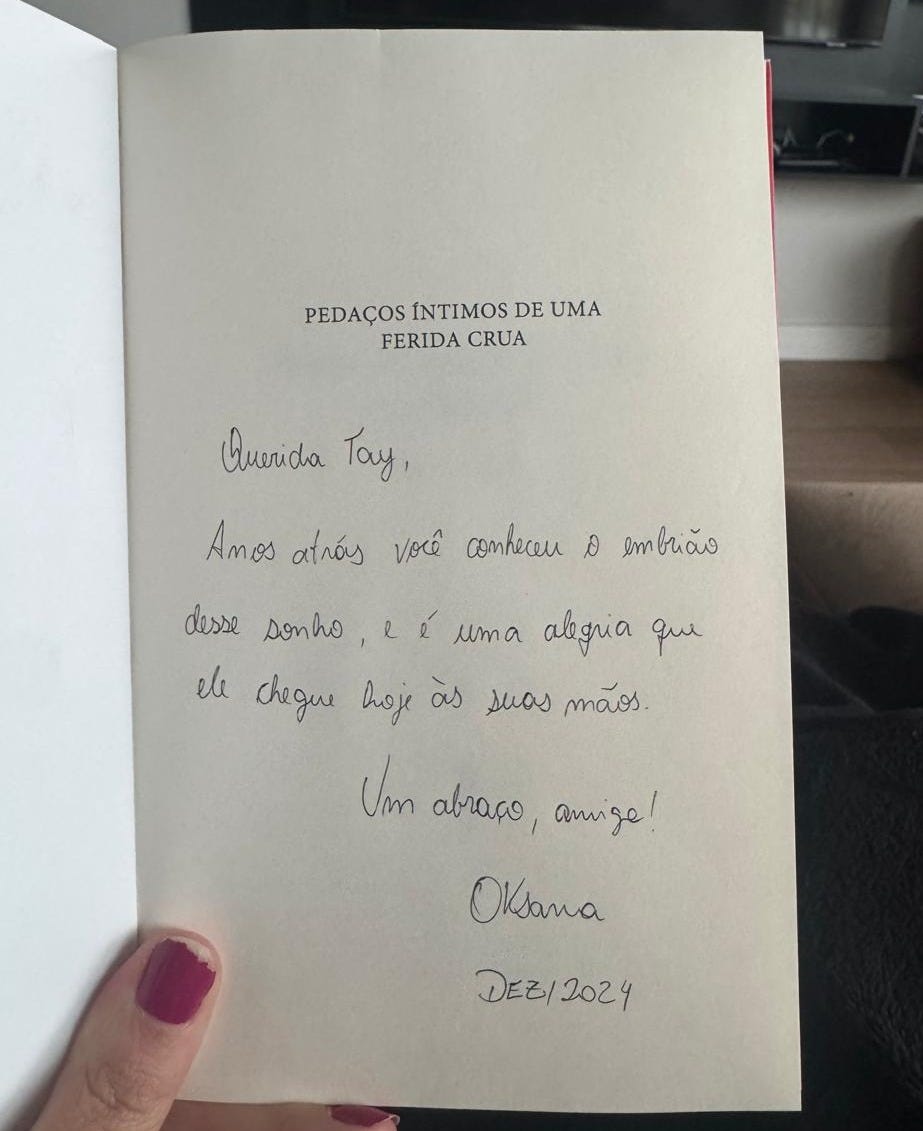 PEDAÇOS ÍNTIMOS DE UMA
FERIDA CRUA
Querida Tay,
Anos atrás você conheceu o embrião
desse sonho, e é uma alegria que
ele chegue hoje às suas mãos.
Um abraço, amiga!
Oksana
DEZ/2024